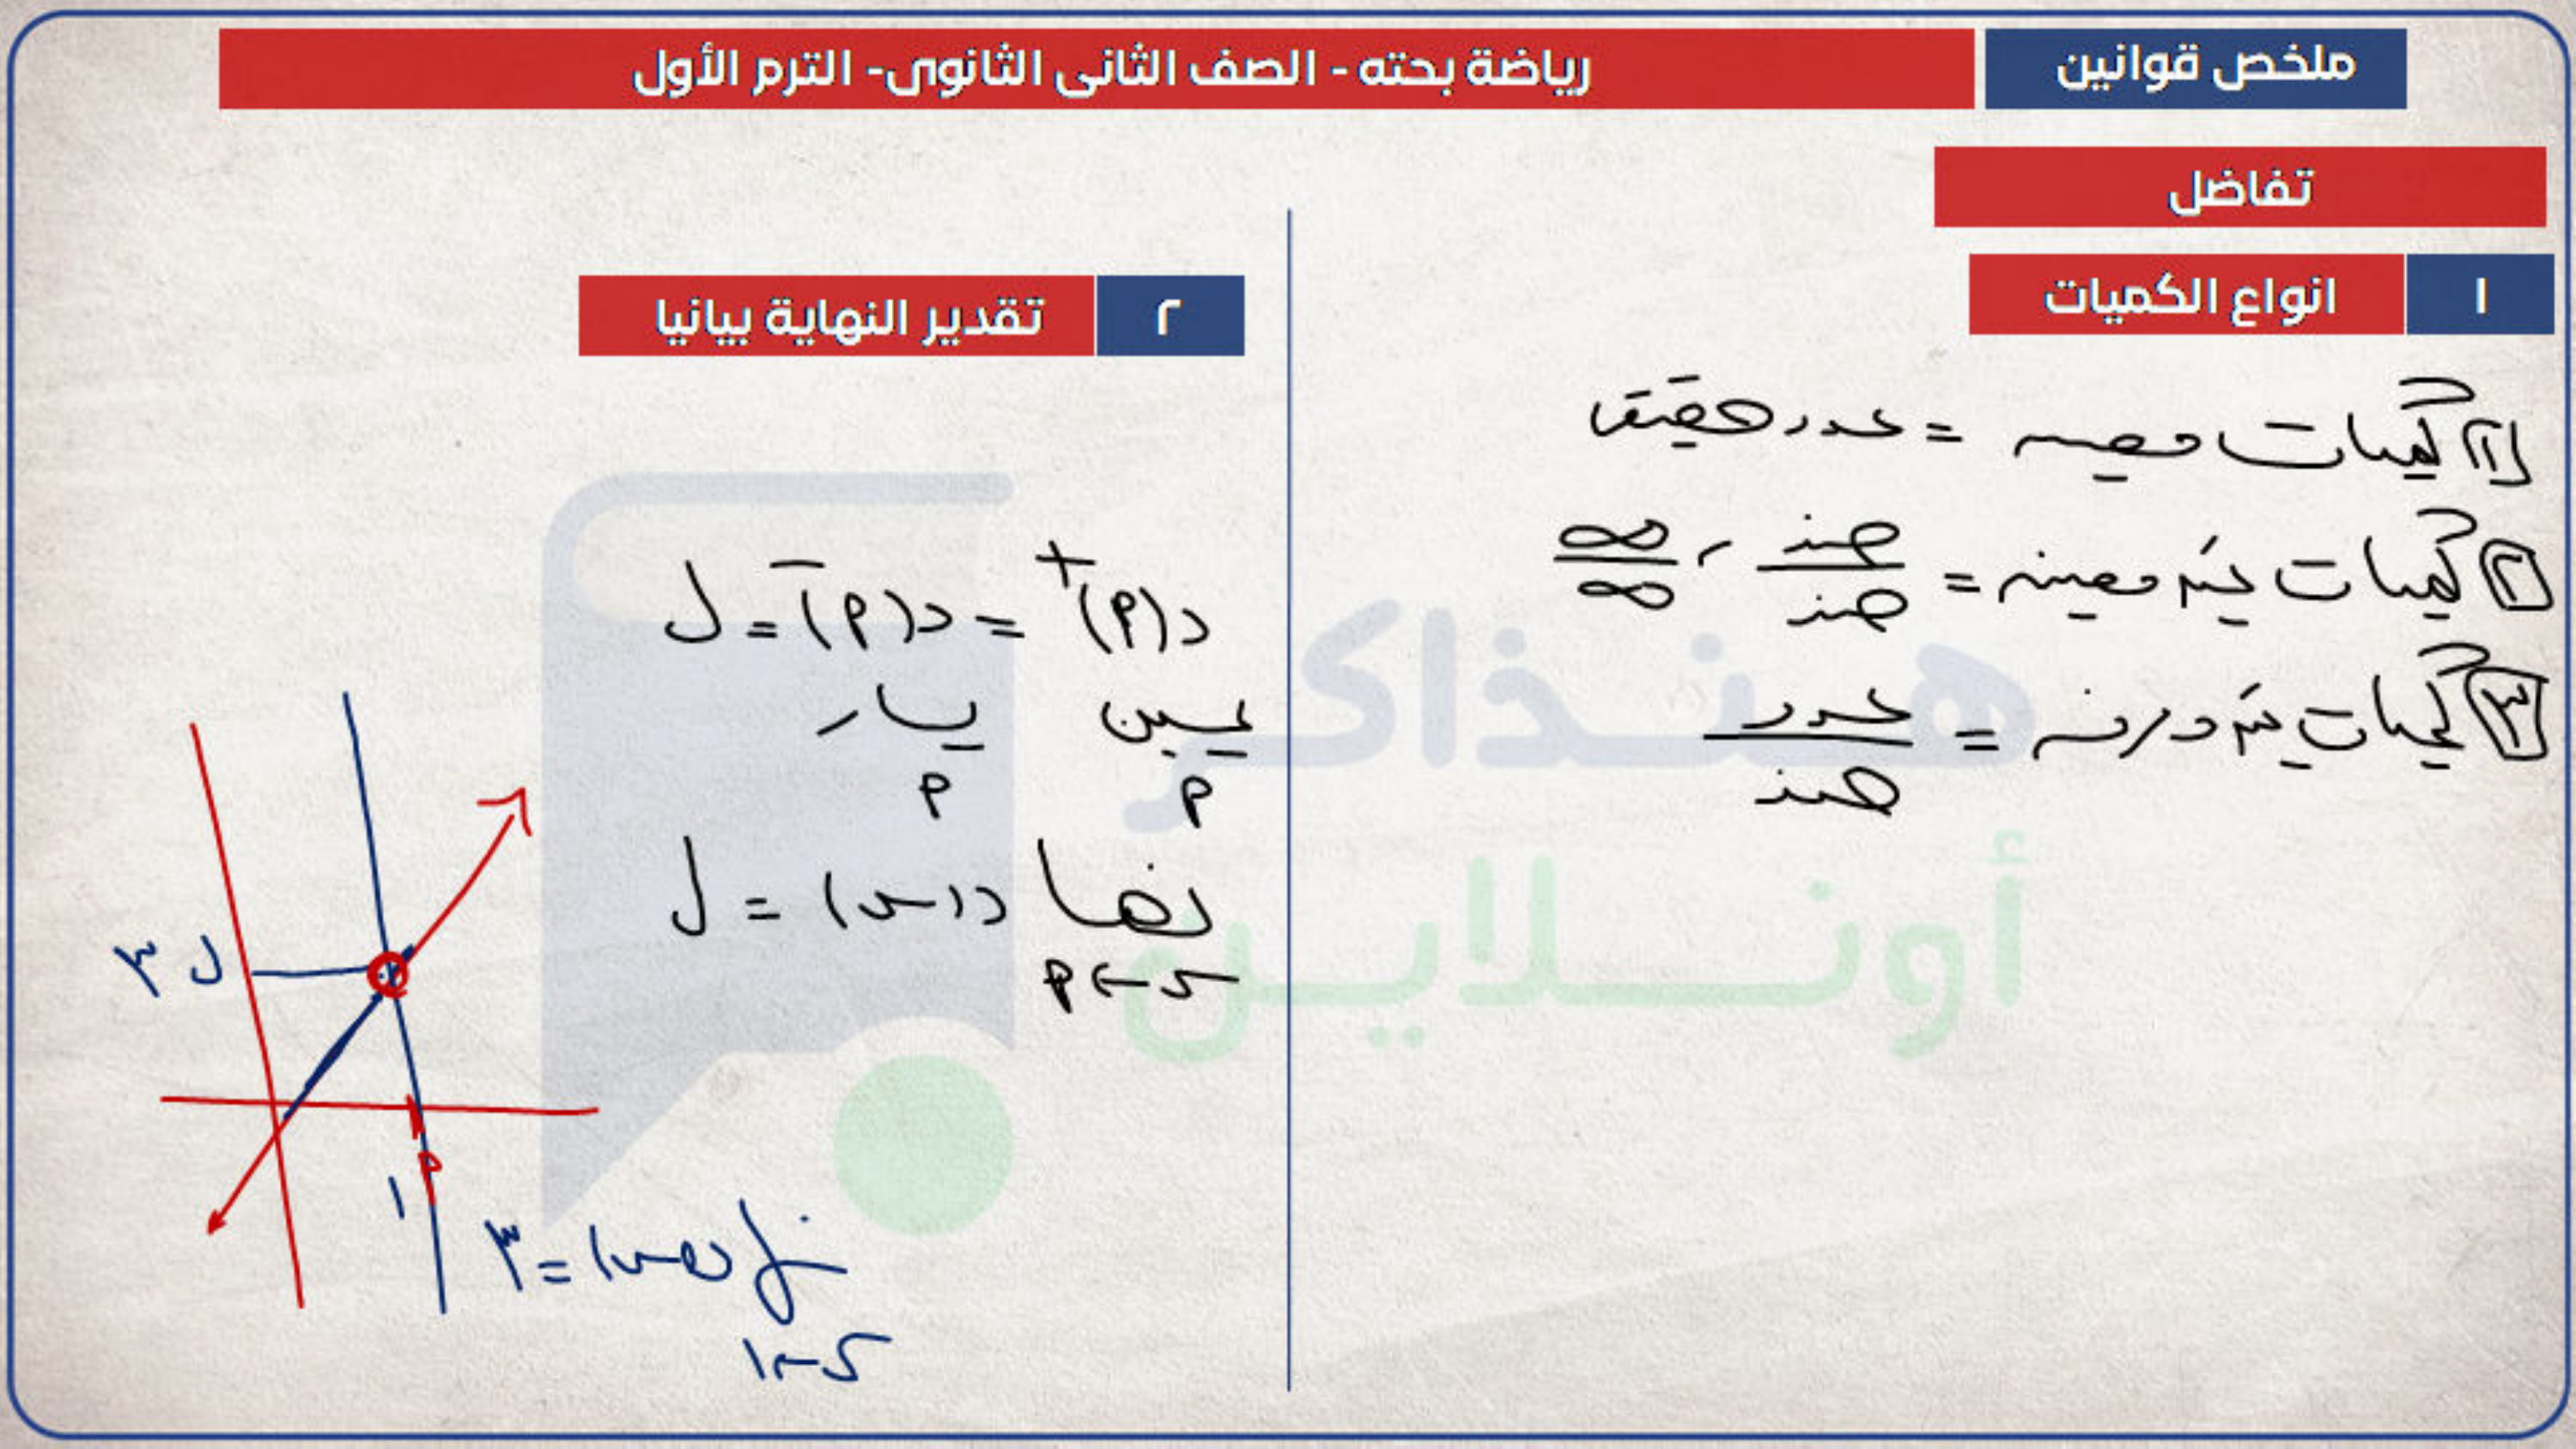 ملخص قوانين
رياضة بحته - الصف الثانى الثانوى- الترم الأول
تفاضل
١ انواع الكميات
١ كميات معينه = عدد حقيقى
٢ كميات غير معينه = صفر/صفر ، ∞/∞
٣ كميات غير معرفه = عدد/صفر
٢ تقدير النهاية بيانيا
د(م)⁺ = د(م)⁻ = ل
يمين يسار
م م
نهـا د(س) = ل
س ← م
ل ٣
م
١
نهـا د(س) = ٣
س ← ١
هنذاكر
أونلاين